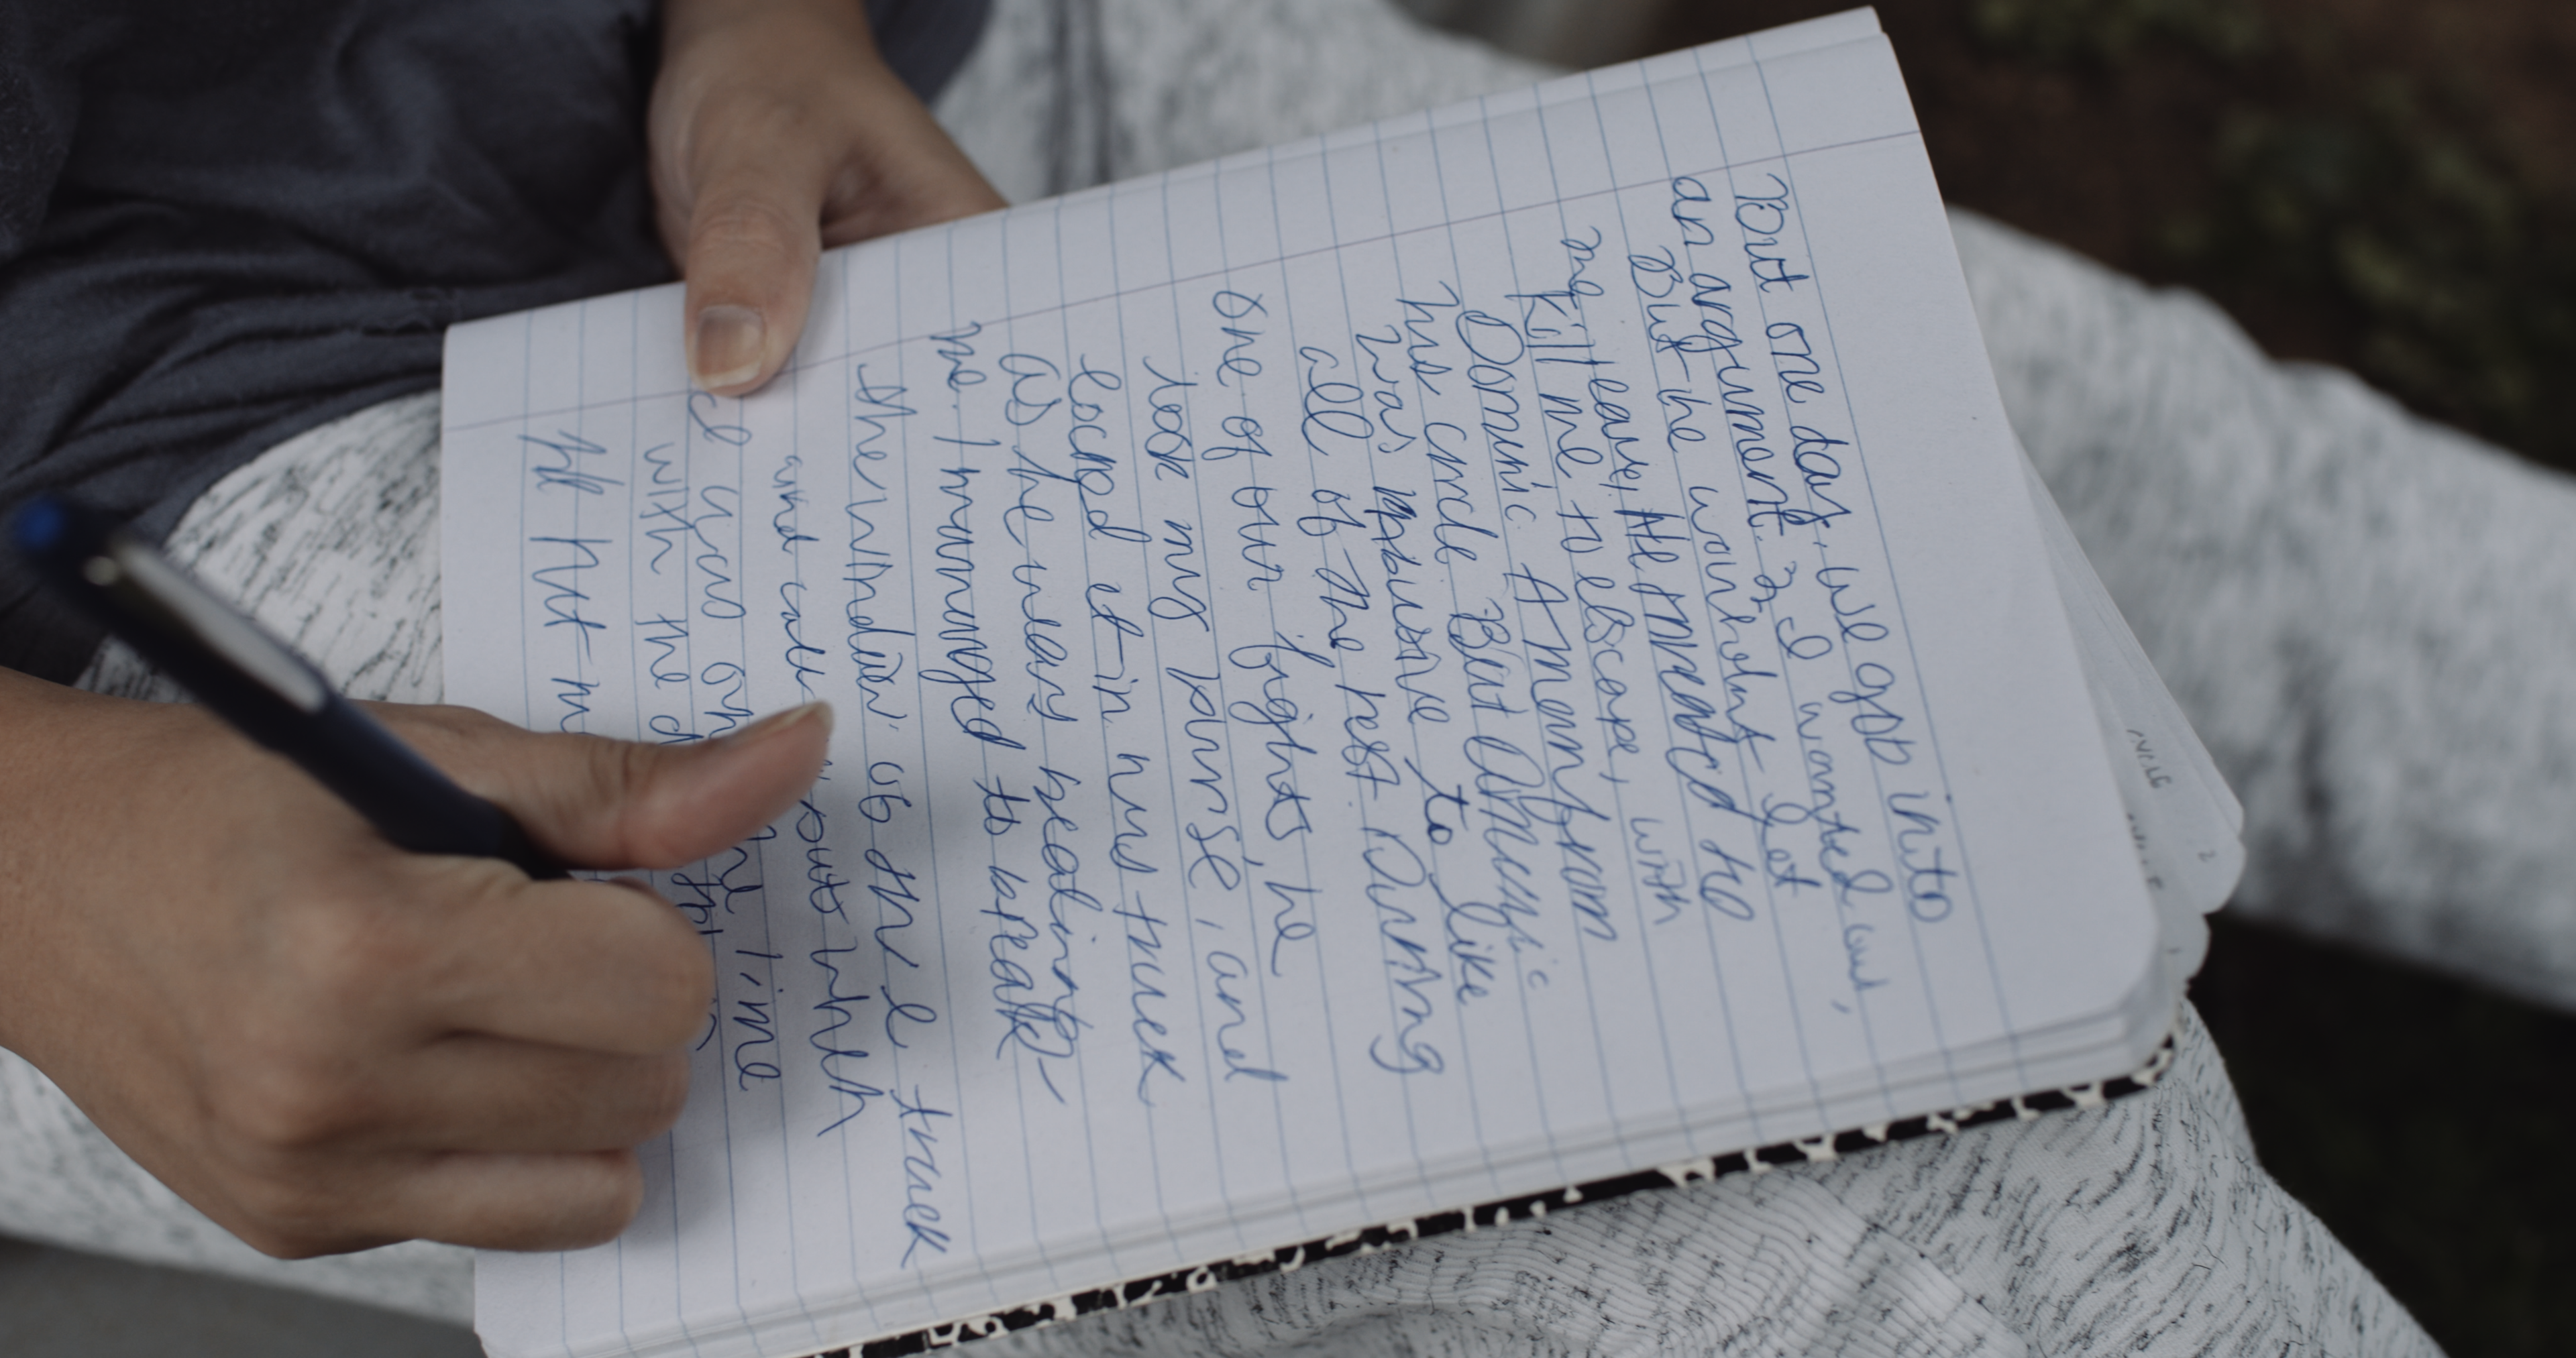 But one day, we got into
an argument. I wanted out,
But he wouldn't let
me leave, He threatned to
kill me to escape, with
Dominic A man from
his circle But Dominic
was abusive to like
all of the rest During
one of our fights, he
took my purse, and
locked it in his truck
As he was beating
me. I managed to break
the window of the truck
and call
I was on line
with the